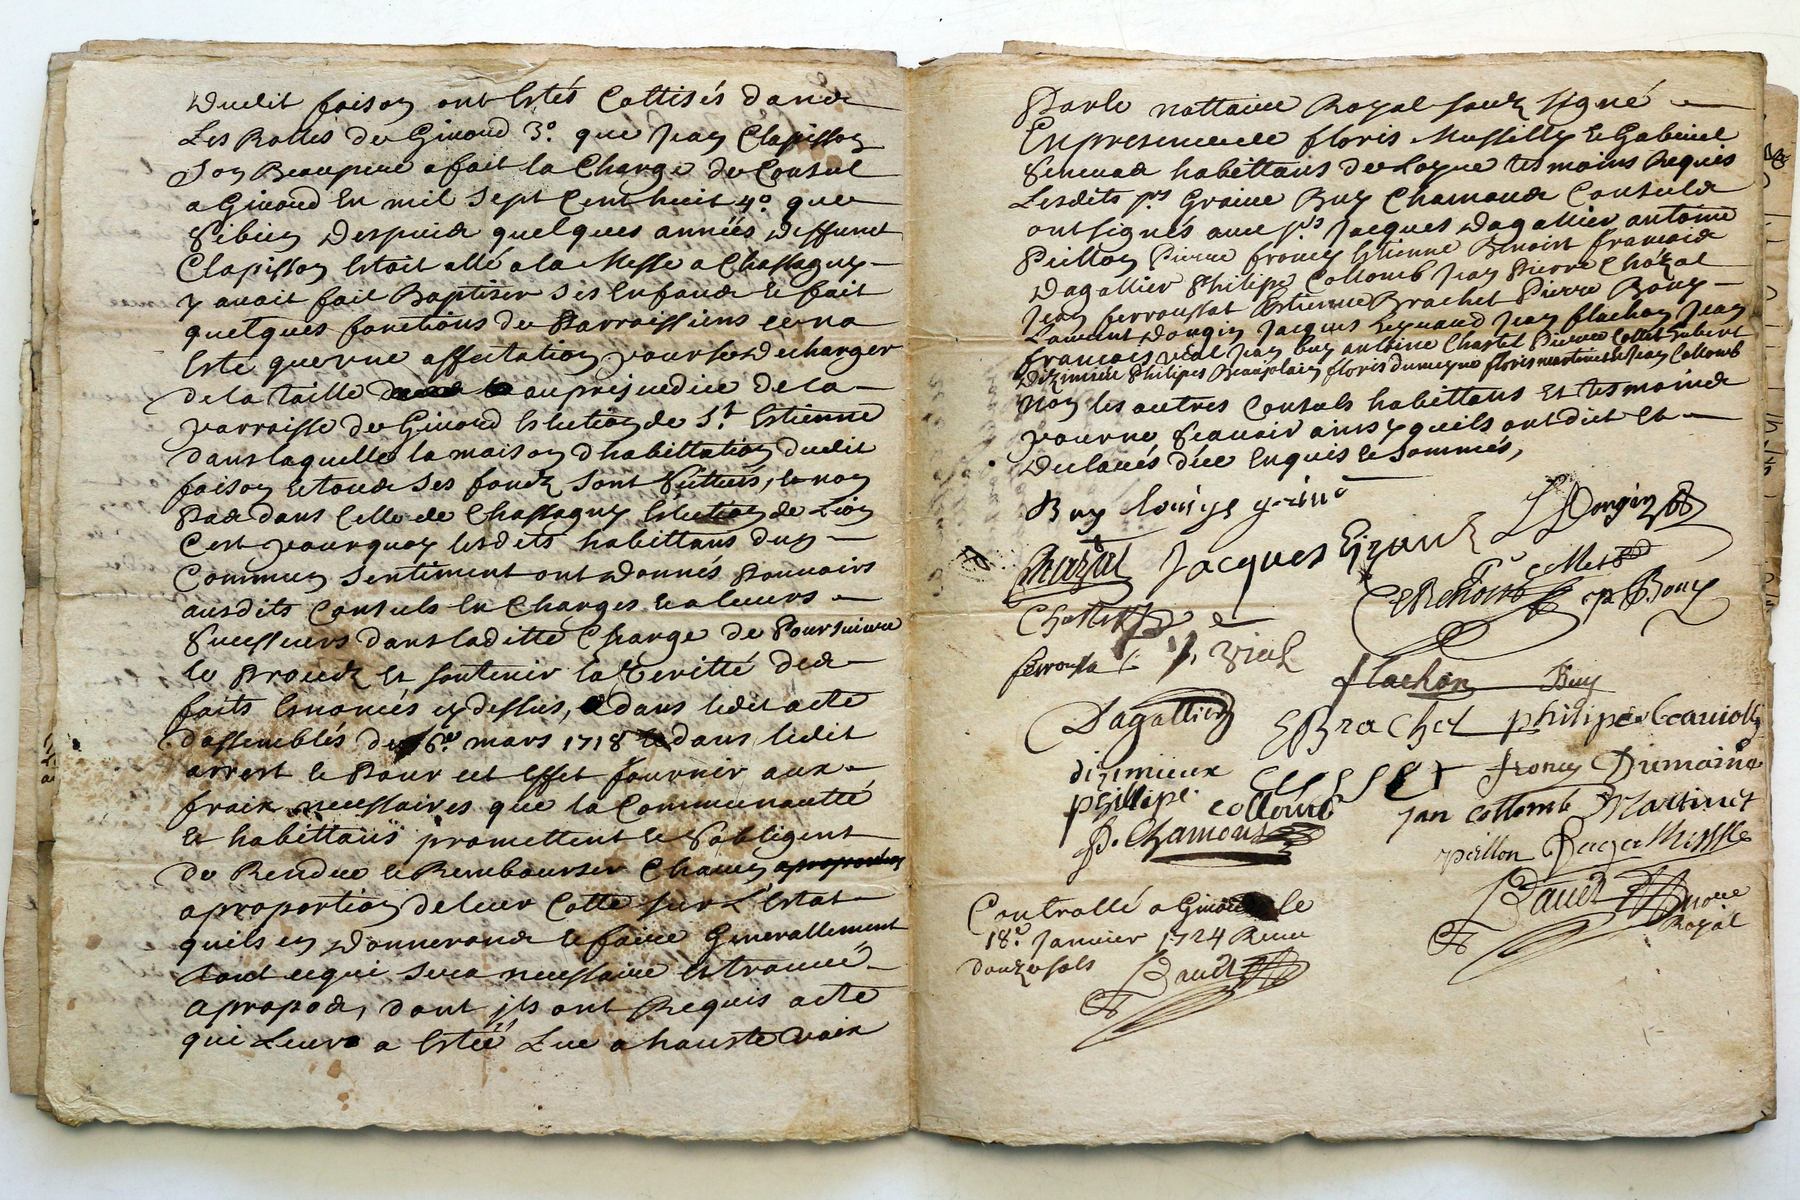 Dudit foison ont Estés Cottisés dans
Les Rolles de Givord 3.° que Jean Clapisson
Son Beaupere a fait la Charge de Consul
a Givord En mil sept Cent huit 4.° que
Sibien Despuis quelques années Deffunct
Clapisson Estoit allé a la Messe a Chassagny
y avoit fait Baptiser ses Enfands Et fait
quelques fonctions de Parroissiens ce na
Esté que une affectation pour se decharger
de la taille au prejuedice de la
parroisse de Givord Eslection de S.t Estienne
dans laquelle la maison d habittation dudit
foison Et touds ses fondz sont Scittués, Et non
Pas dans Celle de Chassagny Eslection de Lion
Cest pourquoy lesdits habittans dun
Commun sentiment ont Donnés Pouvoirs
ausdits Consuls En Charges Et a leurs
Successeurs dans laditte Charge de Poursuivre
le Procedz Et soutenir la Veritté des
faits Enoncés cy dessus, dans ledit acte
dassemblés du 6.e mars 1718 Et dans ledit
arrest Et Pour cet Effet fournir aux
fraix necessaires que la Communautté
Et habittans promettent Et Sobligent
de Rendre Et Rembourser Chacun aproportion
aproportion de leur Cotte sur L'Estat
quils en Donnerond Et faire Generallement
tout ce qui sera necessaire Et trouvé
apropos, dont jls ont Requis acte
qui Leurs a Estéé Lue a hauste voix
Par le nottaire Royal soubz signé
En presence de floris Mussilly Et Gabriel
habittans de Loyre tesmoins Requis
Lesdits s.rs Graine Buy Chamond Consuls
ont signés avec s.rs Jacques Dagallier antoine
Peillon Pierre francy Estienne Benoist francois
Dagallier Philipe Collomb Jean Pierre Chazal
Jean ferroussat Estienne Brachet Pierre Bony
Laurent Dongin Jacques Jean flachon Jean
francois vial Jean buy antoine Chastel Pierre Collet hubert
Dizimieu Philipes Beaujolain floris dumeyne floris martinet Et Jean Collomb
Non les autres Consuls habittans Et tesmoinds
pour ne Scavoir ainsy quils ont dict Et
Declarés dêe Enquis Et Sommés,
Buy
L Dongin
Chazal Jacques
P Collet
P Bony
Chastel
ferrousa
vial
flachon Buy
Dagallier
E Brachet philipe
dizimieux
francy Dumaine
philipe collomb
Jan Collomb Martinet
P. Chamond
peillon
Baudt
no.re
Royal
Controllé a Givord le
18.e Janvier 1724 Receu
douze sols
Baudt